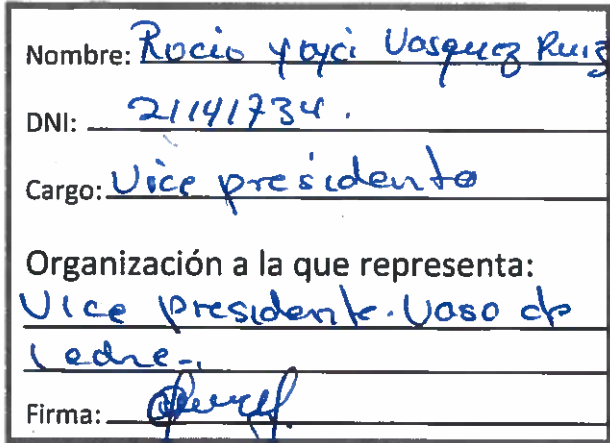 Nombre: Rocio Yoyci Vasquez Ruiz
DNI: 21141734.
Cargo: Vice presidenta
Organización a la que representa:
Vice presidente. Vaso de
Leche-.
Firma: